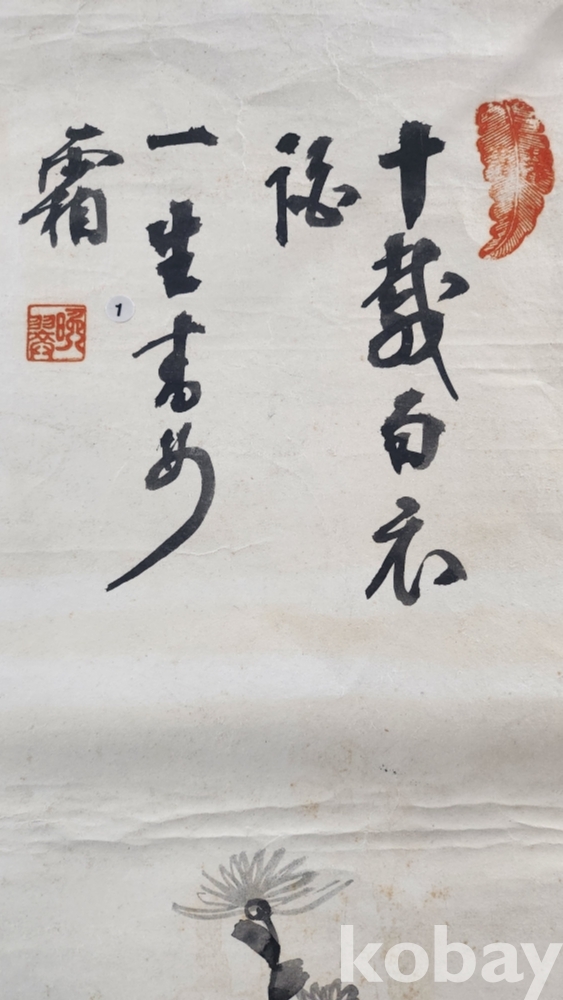 十載白衣
一生青女
霜
晚翠
1
kobay